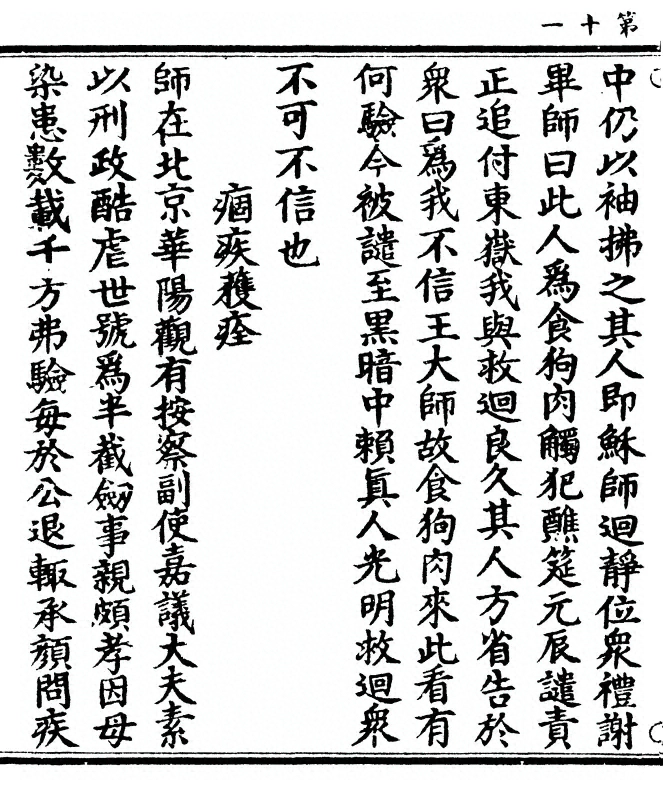 第十一
中仍以袖拂之其人即穌師迴靜位衆禮謝
畢師曰此人爲食狗肉觸犯醮筵元辰譴責
正追付東嶽我與救迴良久其人方省告於
衆曰爲我不信王大師故食狗肉來此看有
何驗今被譴至黑暗中賴眞人光明救迴衆
不可不信也
痼疾獲痊
師在北京華陽觀有按察副使嘉議大夫素
以刑政酷虐世號爲半截劒事親頗孝因母
染患數載千方弗驗每於公退輙承顔問疾